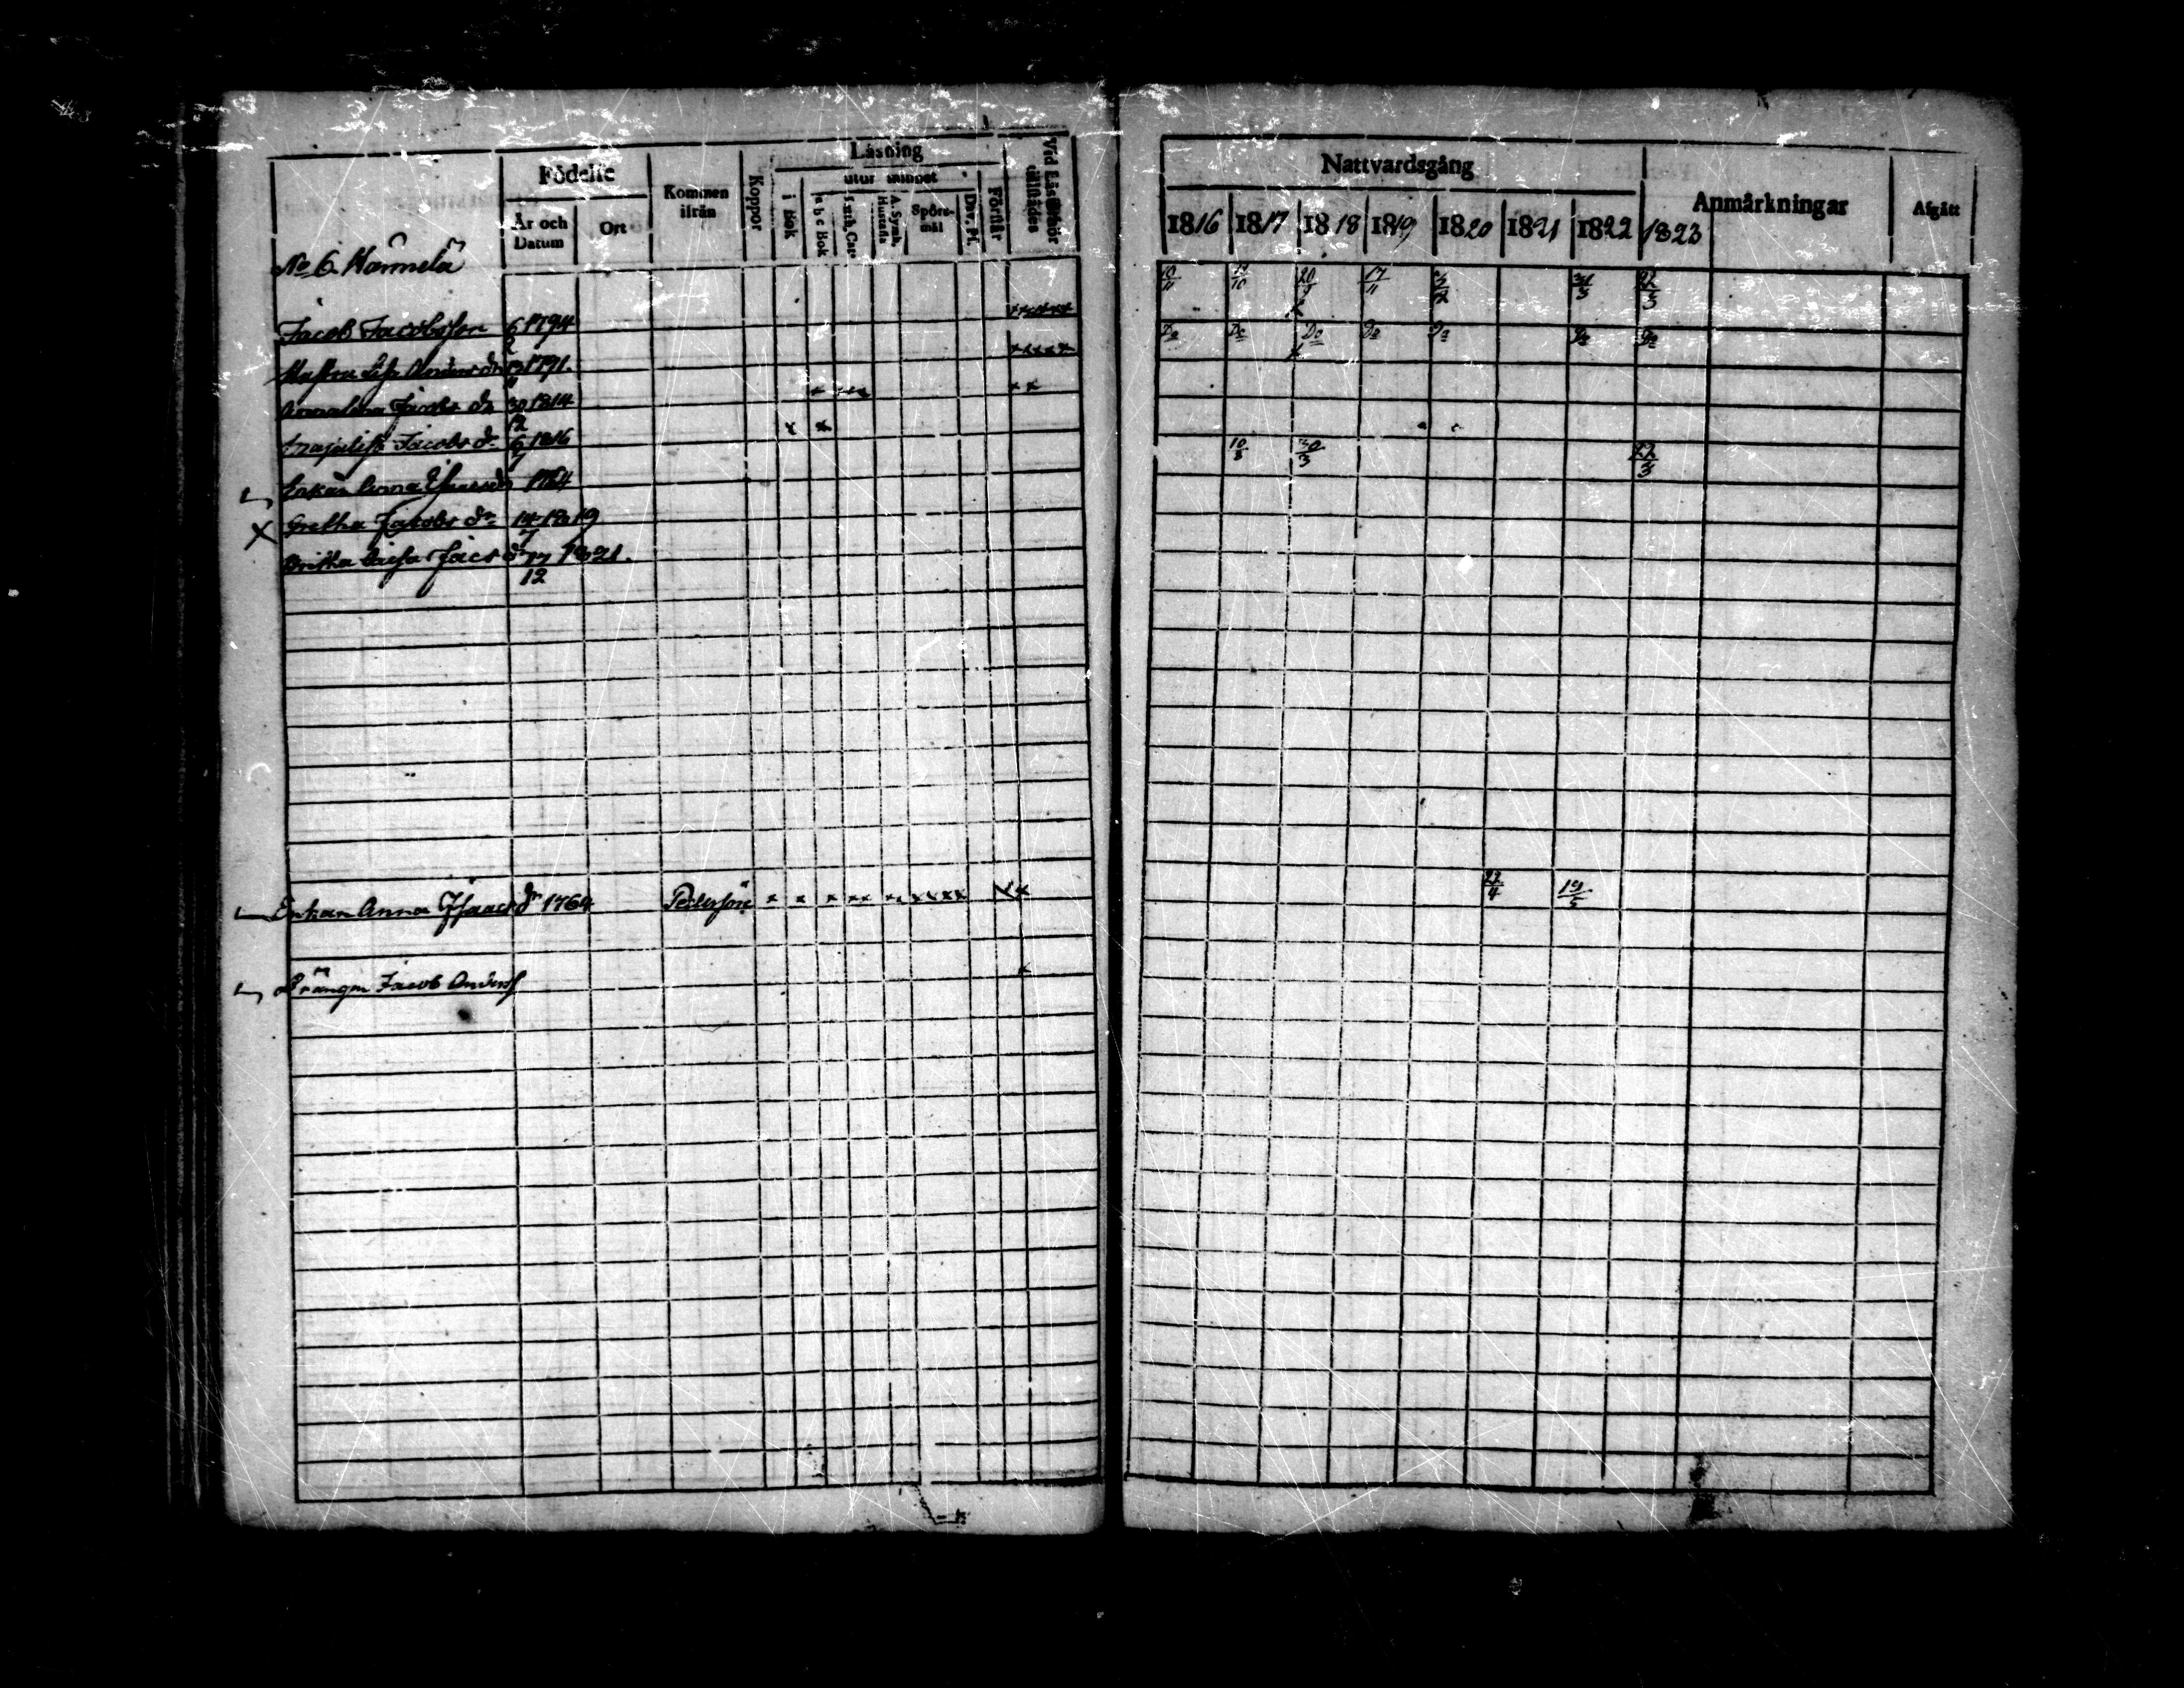 Födelse
Kommen ifrån
Koppor
Läsning
utur minnet
Vid Läseförhör tillstädes
År och Datum
Ort
i Bok
a b c Bok
A. Symb. Hustafla
Spörsmål
Dav. Ps.
Förstår
No 6. Hannela
Jacob Jacobsson 6/2 1794
Lisa Anders dr 1791.
Annalena Jacobs dr 30/12 1814
Majalisa Jacobs dr 6/7 1816
Enkan Anna Isaacs dr 1764
X Gretha Jacobs dr 14/7 1819
Britha Caisa Jacs dr 27/12 1821.
Enkan Anna Isaacs dr 1764 Pedersöre x x x xx xx xxxx
Drängen Jacob Anderss
Nattvardsgång
Anmärkningar
Afgått
1816 1817 1818 1819 1820 1821 1822 1823
10/11 12/10 20/9 17/11 31/3 22/3
Do Do Do Do Do Do Do
10/8 30/3 22/3
22/4 19/5